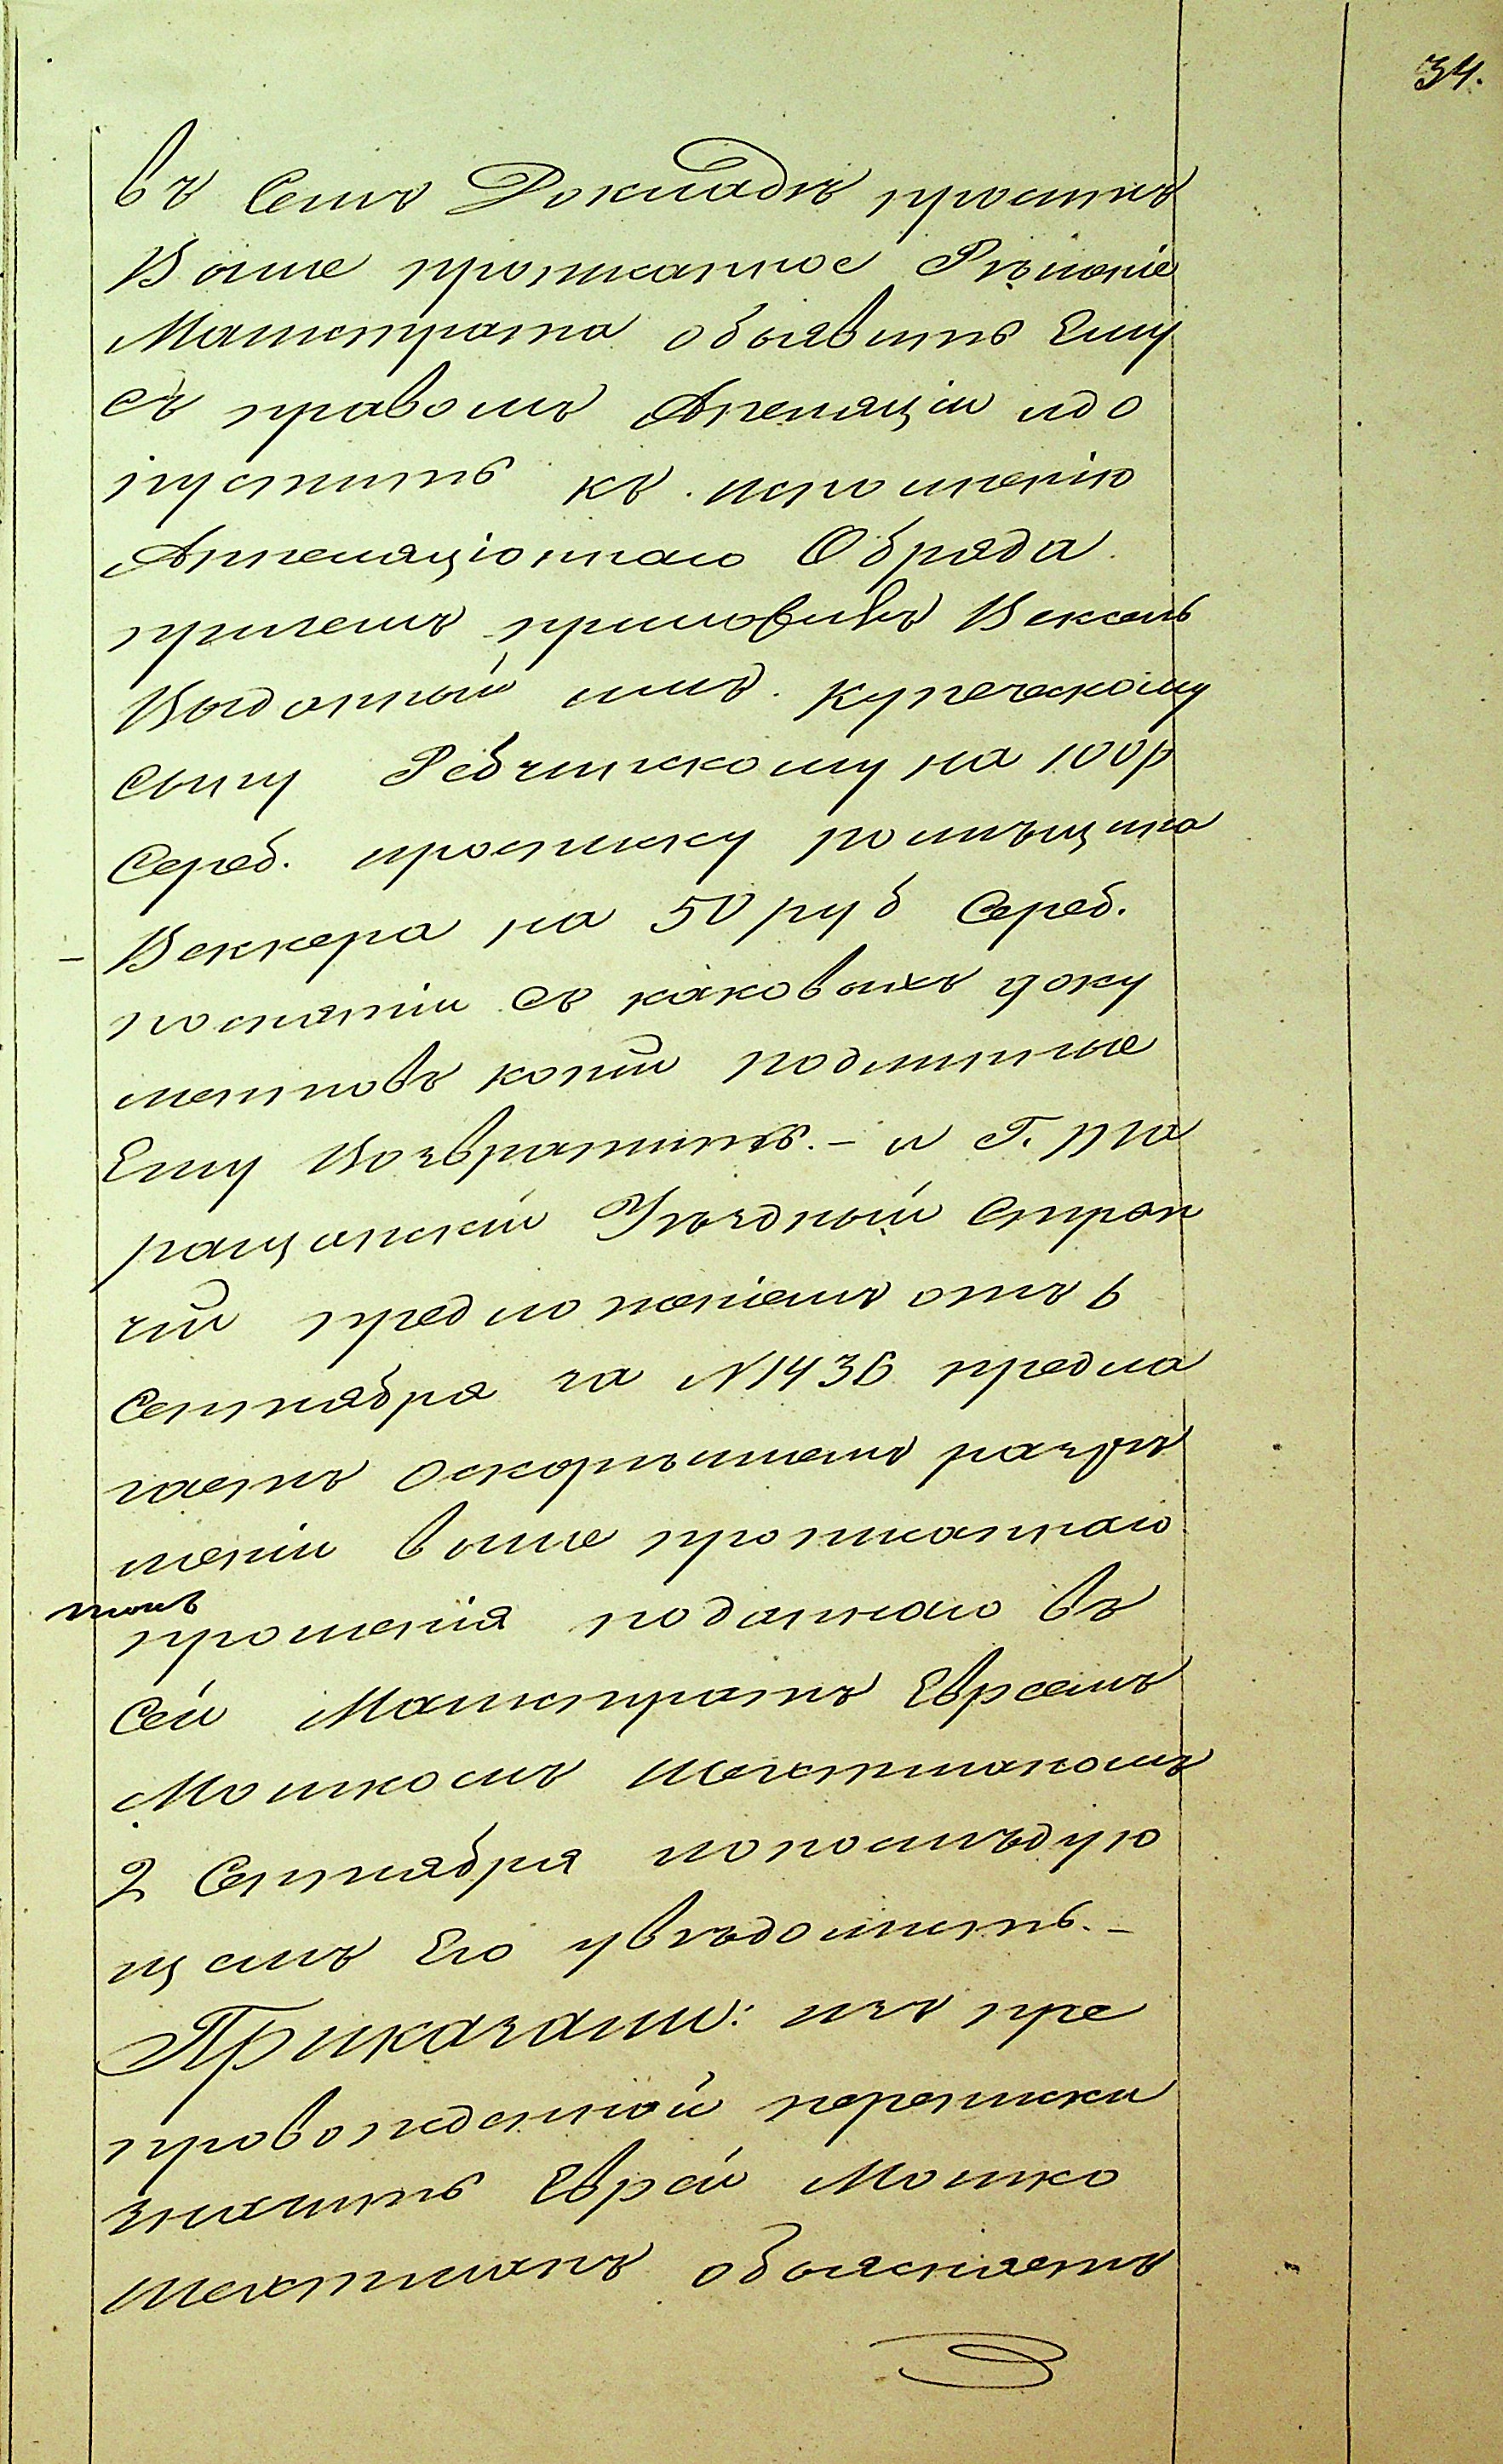 34.
въ Семъ Докладѣ проситъ
Выше прописанное Рѣшеніе
Магистрата объявить Ему
съ правомъ Апеляціи идо
пустить къ исполненію
Аппеляціоннаго Обряда
причемъ приловивъ Вексель
Выданный имъ купеческому
сыну Ребчинскому на 100 р
Сереб. и росписку помѣщика
Веккера на 50 руб Сереб.
поснятіи съ каковыхъ доку
ментовъ копій подлинные
Ему Возвратить. — и Г. Ти
распольскій Уѣздный Стряп
чій предложеніемъ отъ 6
Сентября за N 1436 предла
гаетъ оскорѣйшемъ разрѣ
шеніи выше прописаннаго
прошенія поданнаго въ
Сей Магистратъ Евреемъ
Мошкомъ Шехтманомъ
2 Сентября ипопослѣдую
щемъ Его увѣдомить. —
Приказали: изъ пре
провожденной переписки
значитъ Еврей Мошко
Шехтманъ объясняетъ